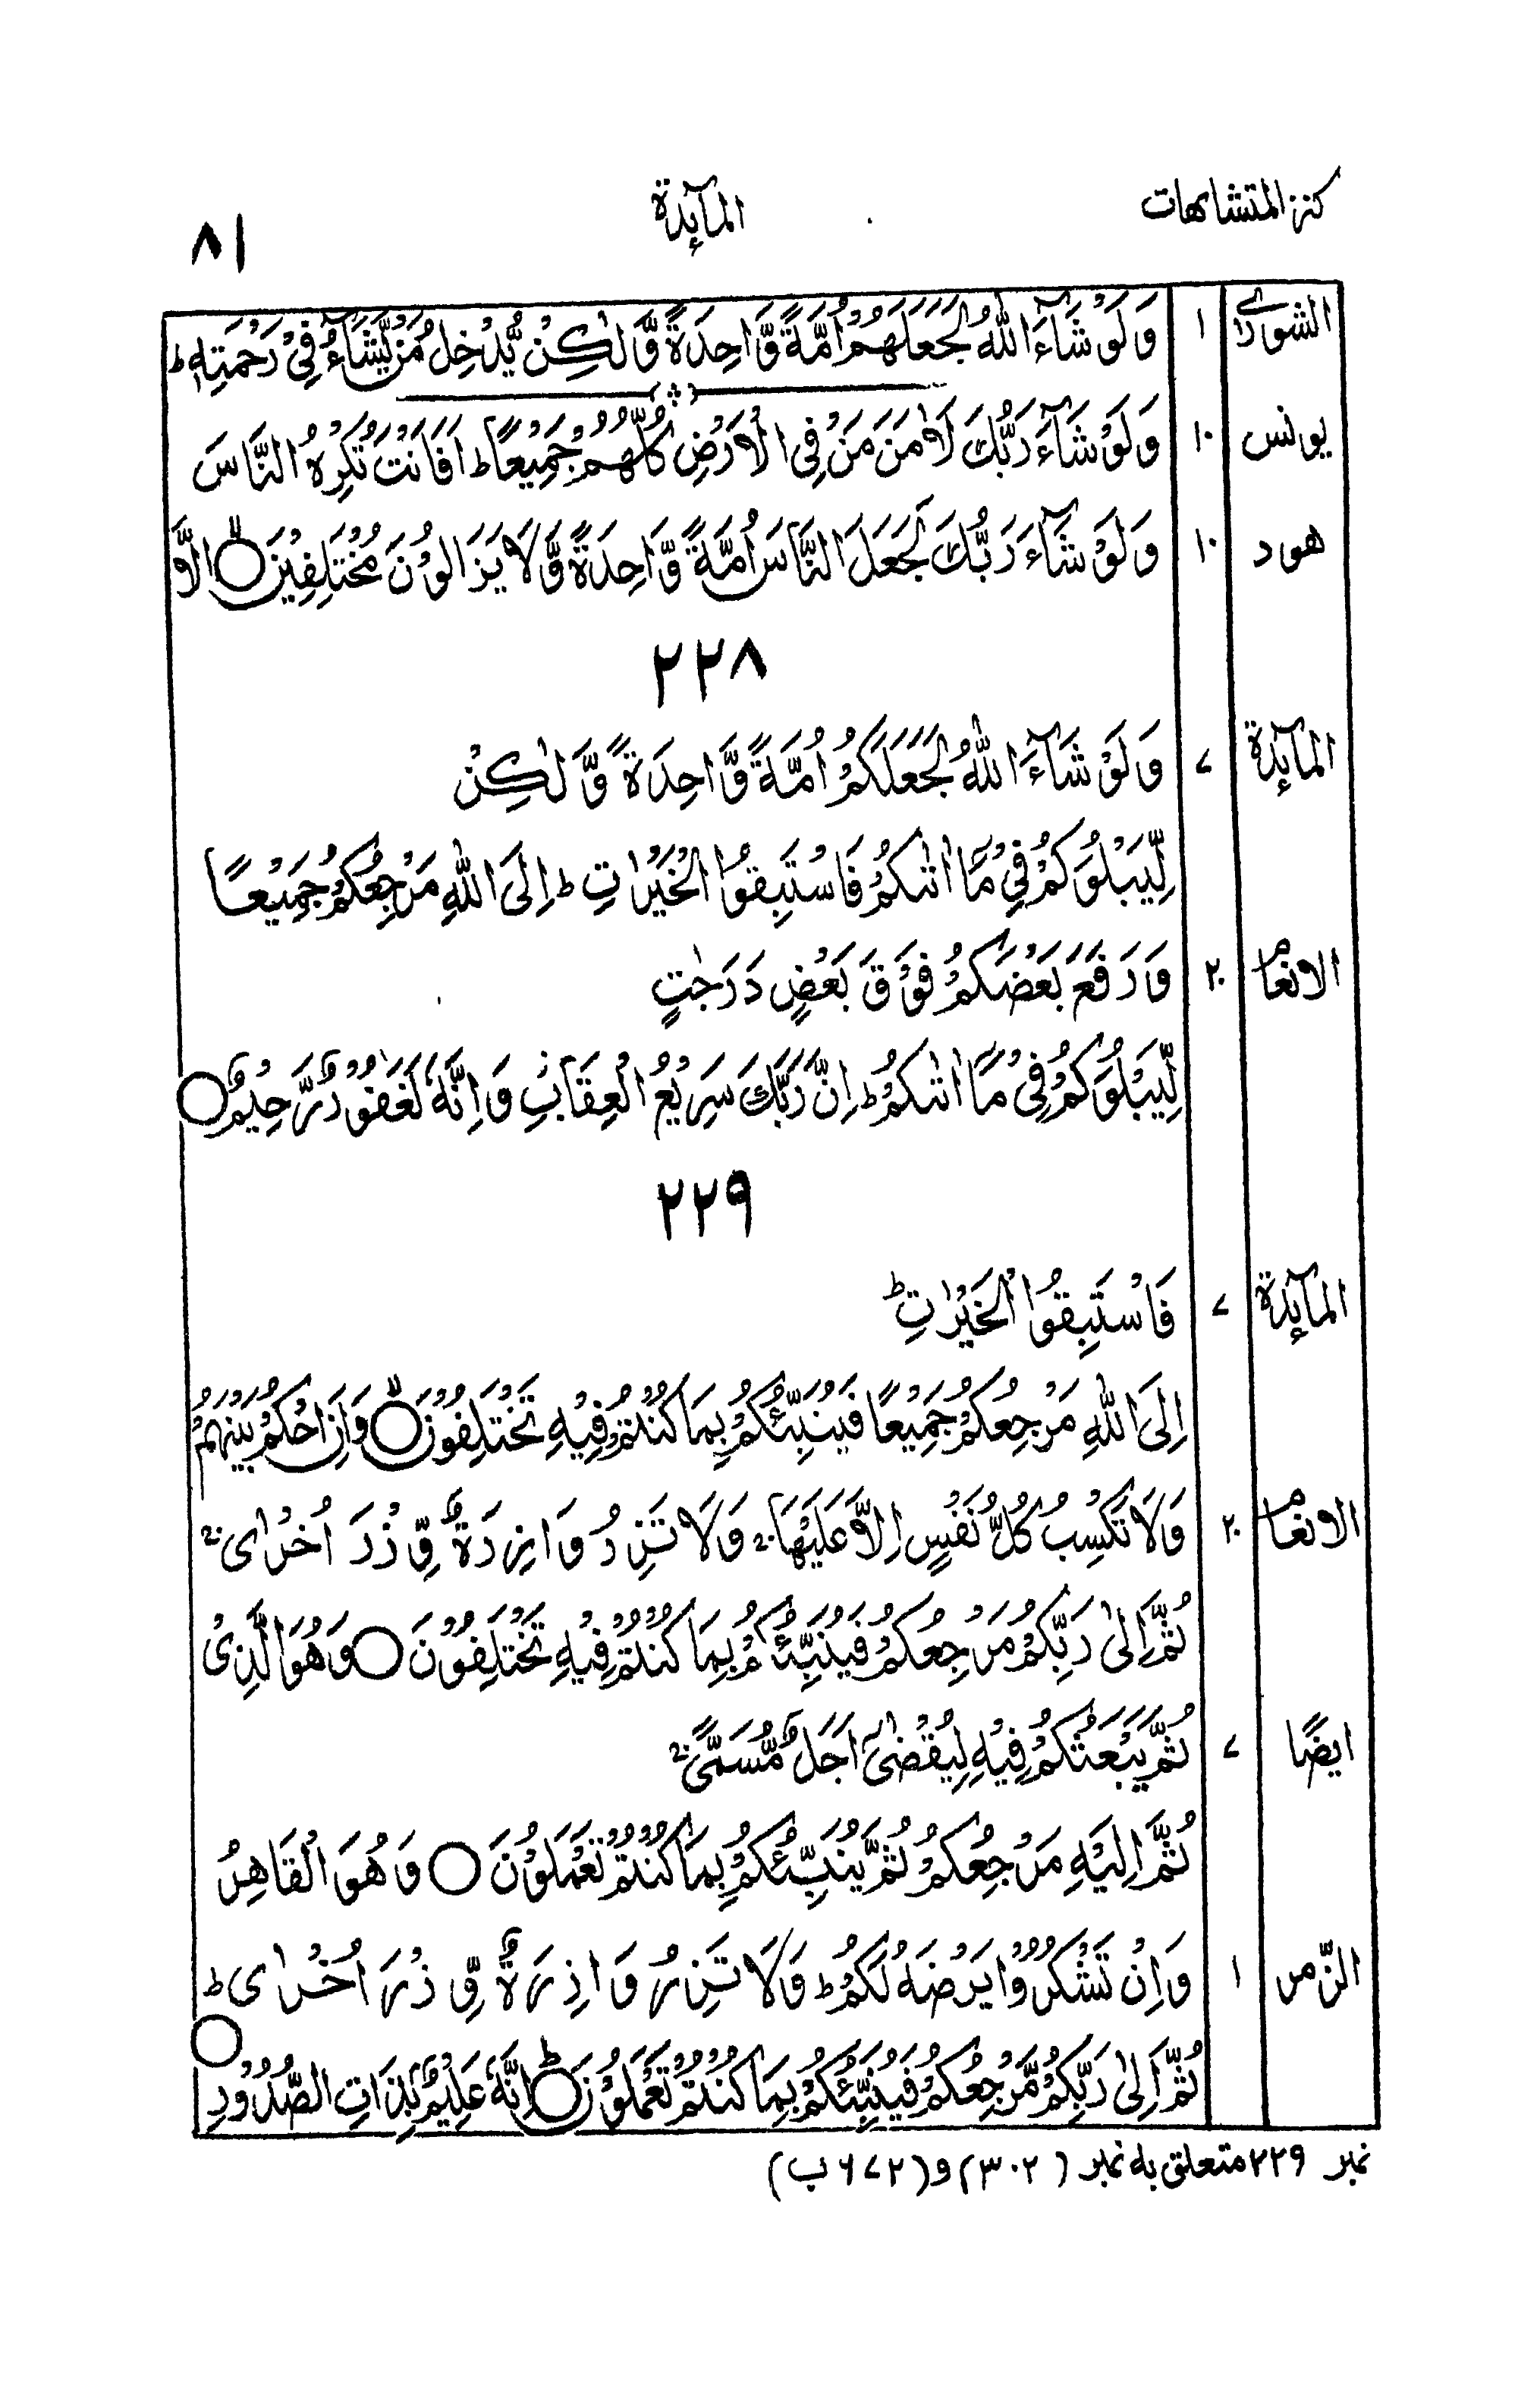 كنز المتشابهات
المآئدة
٨١
الشورٰى ١ وَلَوْ شَآءَ اللّٰهُ لَجَعَلَهُمْ اُمَّةً وَّاحِدَةً وَّلٰكِنْ يُّدْخِلُ مَنْ يَّشَآءُ فِيْ رَحْمَتِهٖ ط
يونس ١٠ وَلَوْ شَآءَ رَبُّكَ لَاٰمَنَ مَنْ فِى الْاَرْضِ كُلُّهُمْ جَمِيْعًا ط اَفَاَنْتَ تُكْرِهُ النَّاسَ
هود ١٠ وَلَوْ شَآءَ رَبُّكَ لَجَعَلَ النَّاسَ اُمَّةً وَّاحِدَةً وَّلَا يَزَالُوْنَ مُخْتَلِفِيْنَ ○ اِلَّا
٢٢٨
المآئدة ٧ وَلَوْ شَآءَ اللّٰهُ لَجَعَلَكُمْ اُمَّةً وَّاحِدَةً وَّلٰكِنْ
لِّيَبْلُوَكُمْ فِيْ مَآ اٰتٰىكُمْ فَاسْتَبِقُوا الْخَيْرٰتِ ط اِلَى اللّٰهِ مَرْجِعُكُمْ جَمِيْعًا
الانعام ٢٠ وَرَفَعَ بَعْضَكُمْ فَوْقَ بَعْضٍ دَرَجٰتٍ
لِّيَبْلُوَكُمْ فِيْ مَآ اٰتٰىكُمْ ط اِنَّ رَبَّكَ سَرِيْعُ الْعِقَابِ وَاِنَّهٗ لَغَفُوْرٌ رَّحِيْمٌ ○
٢٢٩
المآئدة ٧ فَاسْتَبِقُوا الْخَيْرٰتِ ط
اِلَى اللّٰهِ مَرْجِعُكُمْ جَمِيْعًا فَيُنَبِّئُكُمْ بِمَا كُنْتُمْ فِيْهِ تَخْتَلِفُوْنَ ○ وَاَنِ احْكُمْ بَيْنَهُمْ
الانعام ٢٠ وَلَا تَكْسِبُ كُلُّ نَفْسٍ اِلَّا عَلَيْهَا ج وَلَا تَزِرُ وَازِرَةٌ وِّزْرَ اُخْرٰى ج
ثُمَّ اِلٰى رَبِّكُمْ مَرْجِعُكُمْ فَيُنَبِّئُكُمْ بِمَا كُنْتُمْ فِيْهِ تَخْتَلِفُوْنَ ○ وَهُوَ الَّذِىْ
ايضًا ٧ ثُمَّ يَبْعَثُكُمْ فِيْهِ لِيُقْضٰٓى اَجَلٌ مُّسَمًّى ج
ثُمَّ اِلَيْهِ مَرْجِعُكُمْ ثُمَّ يُنَبِّئُكُمْ بِمَا كُنْتُمْ تَعْمَلُوْنَ ○ وَهُوَ الْقَاهِرُ
الزّمر ١ وَاِنْ تَشْكُرُوْا يَرْضَهُ لَكُمْ ط وَلَا تَزِرُ وَازِرَةٌ وِّزْرَ اُخْرٰى ط
ثُمَّ اِلٰى رَبِّكُمْ مَّرْجِعُكُمْ فَيُنَبِّئُكُمْ بِمَا كُنْتُمْ تَعْمَلُوْنَ ط اِنَّهٗ عَلِيْمٌۢ بِذَاتِ الصُّدُوْرِ ○
نمبر ٢٢٩ متعلق به نمبر (٣٠٢) و (٦٧٢ ب)